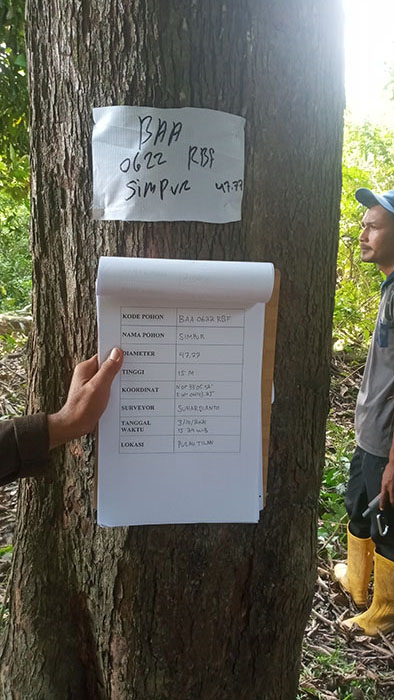 BAA
0622 RBF
SIMPUR 47.77
KODE POHON BAA 0622 RBF
NAMA POHON SIMPUR
DIAMETER 47.77
TINGGI 15 M
KOORDINAT
SURVEYOR SUHARDIANTO
TANGGAL
WAKTU
LOKASI